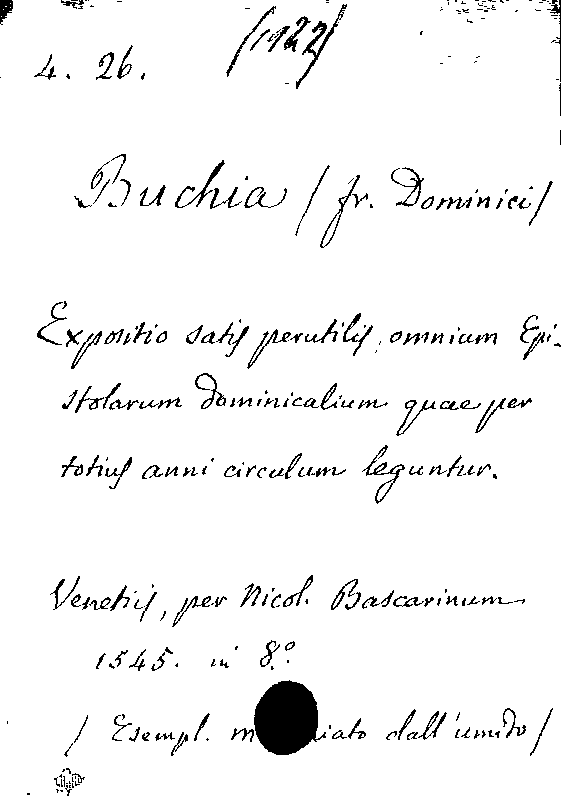 (1922)
4. 26.
Buchia / fr. Dominici /
Expositio satis perutilis, omnium Epi-
stolarum dominicalium quae per
totius anni circulum leguntur.
Venetiis, per Nicol. Bascarinum
1545. in 8.º
/ Esempl. dall'umido /